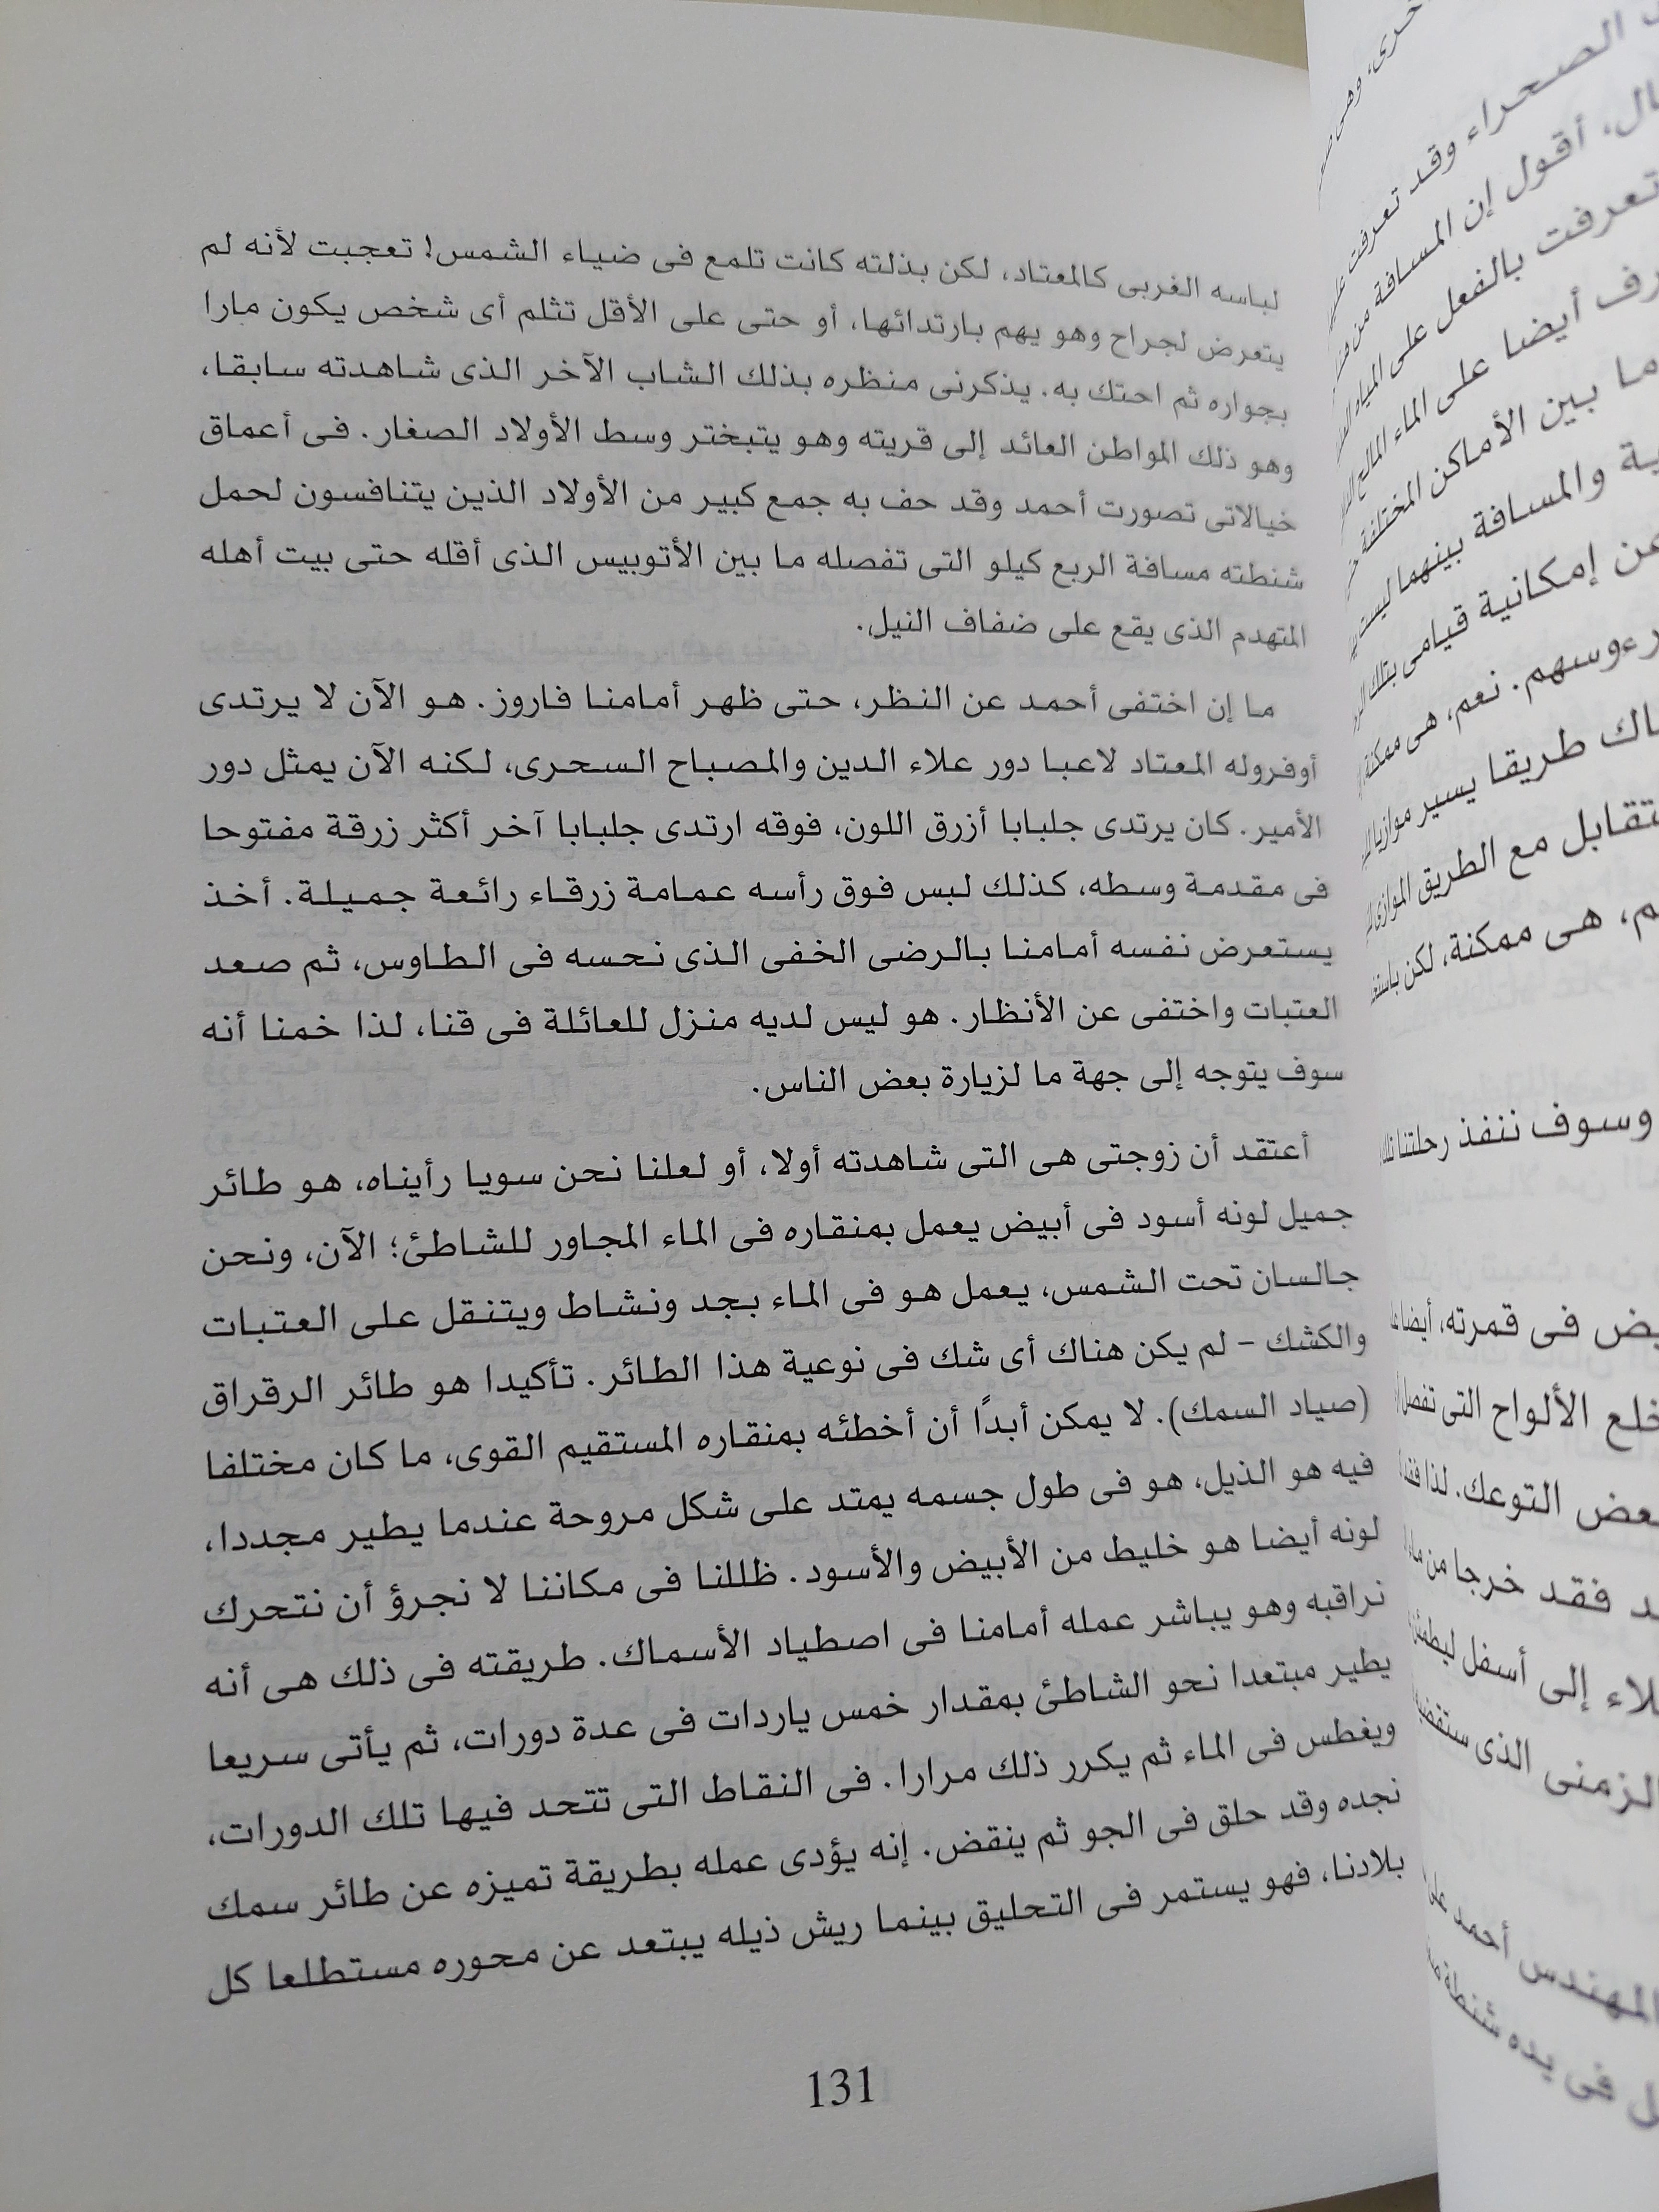 لباسه الغربى كالمعتاد، لكن بذلته كانت تلمع فى ضياء الشمس! تعجبت لأنه لم
يتعرض لجراح وهو يهم بارتدائها، أو حتى على الأقل تثلم أى شخص يكون مارا
بجواره ثم احتك به. يذكرنى منظره بذلك الشاب الآخر الذى شاهدته سابقا،
وهو ذلك المواطن العائد إلى قريته وهو يتبختر وسط الأولاد الصغار. فى أعماق
خيالاتى تصورت أحمد وقد حف به جمع كبير من الأولاد الذين يتنافسون لحمل
شنطته مسافة الربع كيلو التى تفصله ما بين الأتوبيس الذى أقله حتى بيت أهله
المتهدم الذى يقع على ضفاف النيل.
ما إن اختفى أحمد عن النظر، حتى ظهر أمامنا فاروز. هو الآن لا يرتدى
أوفروله المعتاد لاعبا دور علاء الدين والمصباح السحرى، لكنه الآن يمثل دور
الأمير. كان يرتدى جلبابا أزرق اللون، فوقه ارتدى جلبابا آخر أكثر زرقة مفتوحا
فى مقدمة وسطه، كذلك لبس فوق رأسه عمامة زرقاء رائعة جميلة. أخذ
يستعرض نفسه أمامنا بالرضى الخفى الذى نحسه فى الطاوس، ثم صعد
العتبات واختفى عن الأنظار. هو ليس لديه منزل للعائلة فى قنا، لذا خمنا أنه
سوف يتوجه إلى جهة ما لزيارة بعض الناس.
أعتقد أن زوجتى هى التى شاهدته أولا، أو لعلنا نحن سويا رأيناه، هو طائر
جميل لونه أسود فى أبيض يعمل بمنقاره فى الماء المجاور للشاطئ؛ الآن، ونحن
جالسان تحت الشمس، يعمل هو فى الماء بجد ونشاط ويتنقل على العتبات
والكشك – لم يكن هناك أى شك فى نوعية هذا الطائر. تأكيدا هو طائر الرقراق
(صياد السمك). لا يمكن أبدًا أن أخطئه بمنقاره المستقيم القوى، ما كان مختلفا
فيه هو الذيل، هو فى طول جسمه يمتد على شكل مروحة عندما يطير مجددا،
لونه أيضا هو خليط من الأبيض والأسود. ظللنا فى مكاننا لا نجرؤ أن نتحرك
نراقبه وهو يباشر عمله أمامنا فى اصطياد الأسماك. طريقته فى ذلك هى أنه
يطير مبتعدا نحو الشاطئ بمقدار خمس ياردات فى عدة دورات، ثم يأتى سريعا
ويغطس فى الماء ثم يكرر ذلك مرارا. فى النقاط التى تتحد فيها تلك الدورات،
نجده وقد حلق فى الجو ثم ينقض. إنه يؤدى عمله بطريقة تميزه عن طائر سمك
بلادنا، فهو يستمر فى التحليق بينما ريش ذيله يبتعد عن محوره مستطلعا كل
131
الصحراء وقد تعرفت
أقول إن المسافة من
تعرفت بالفعل على المياه
أيضا على الماء المالح
ما بين الأماكن المختلفة
والمسافة بينهما ليست
عن إمكانية قيامى بتلك
رءوسهم. نعم، هى ممكنة
طريقا يسير موازيا
مع الطريق الموازى
هى ممكنة، لكن
وسوف ننفذ رحلتنا
فى قمرته، أيضا
الألواح التى تفصل
التوعك. لذا
فقد خرجا من
إلى أسفل
الذى
المهندس أحمد
فى يده شنطة